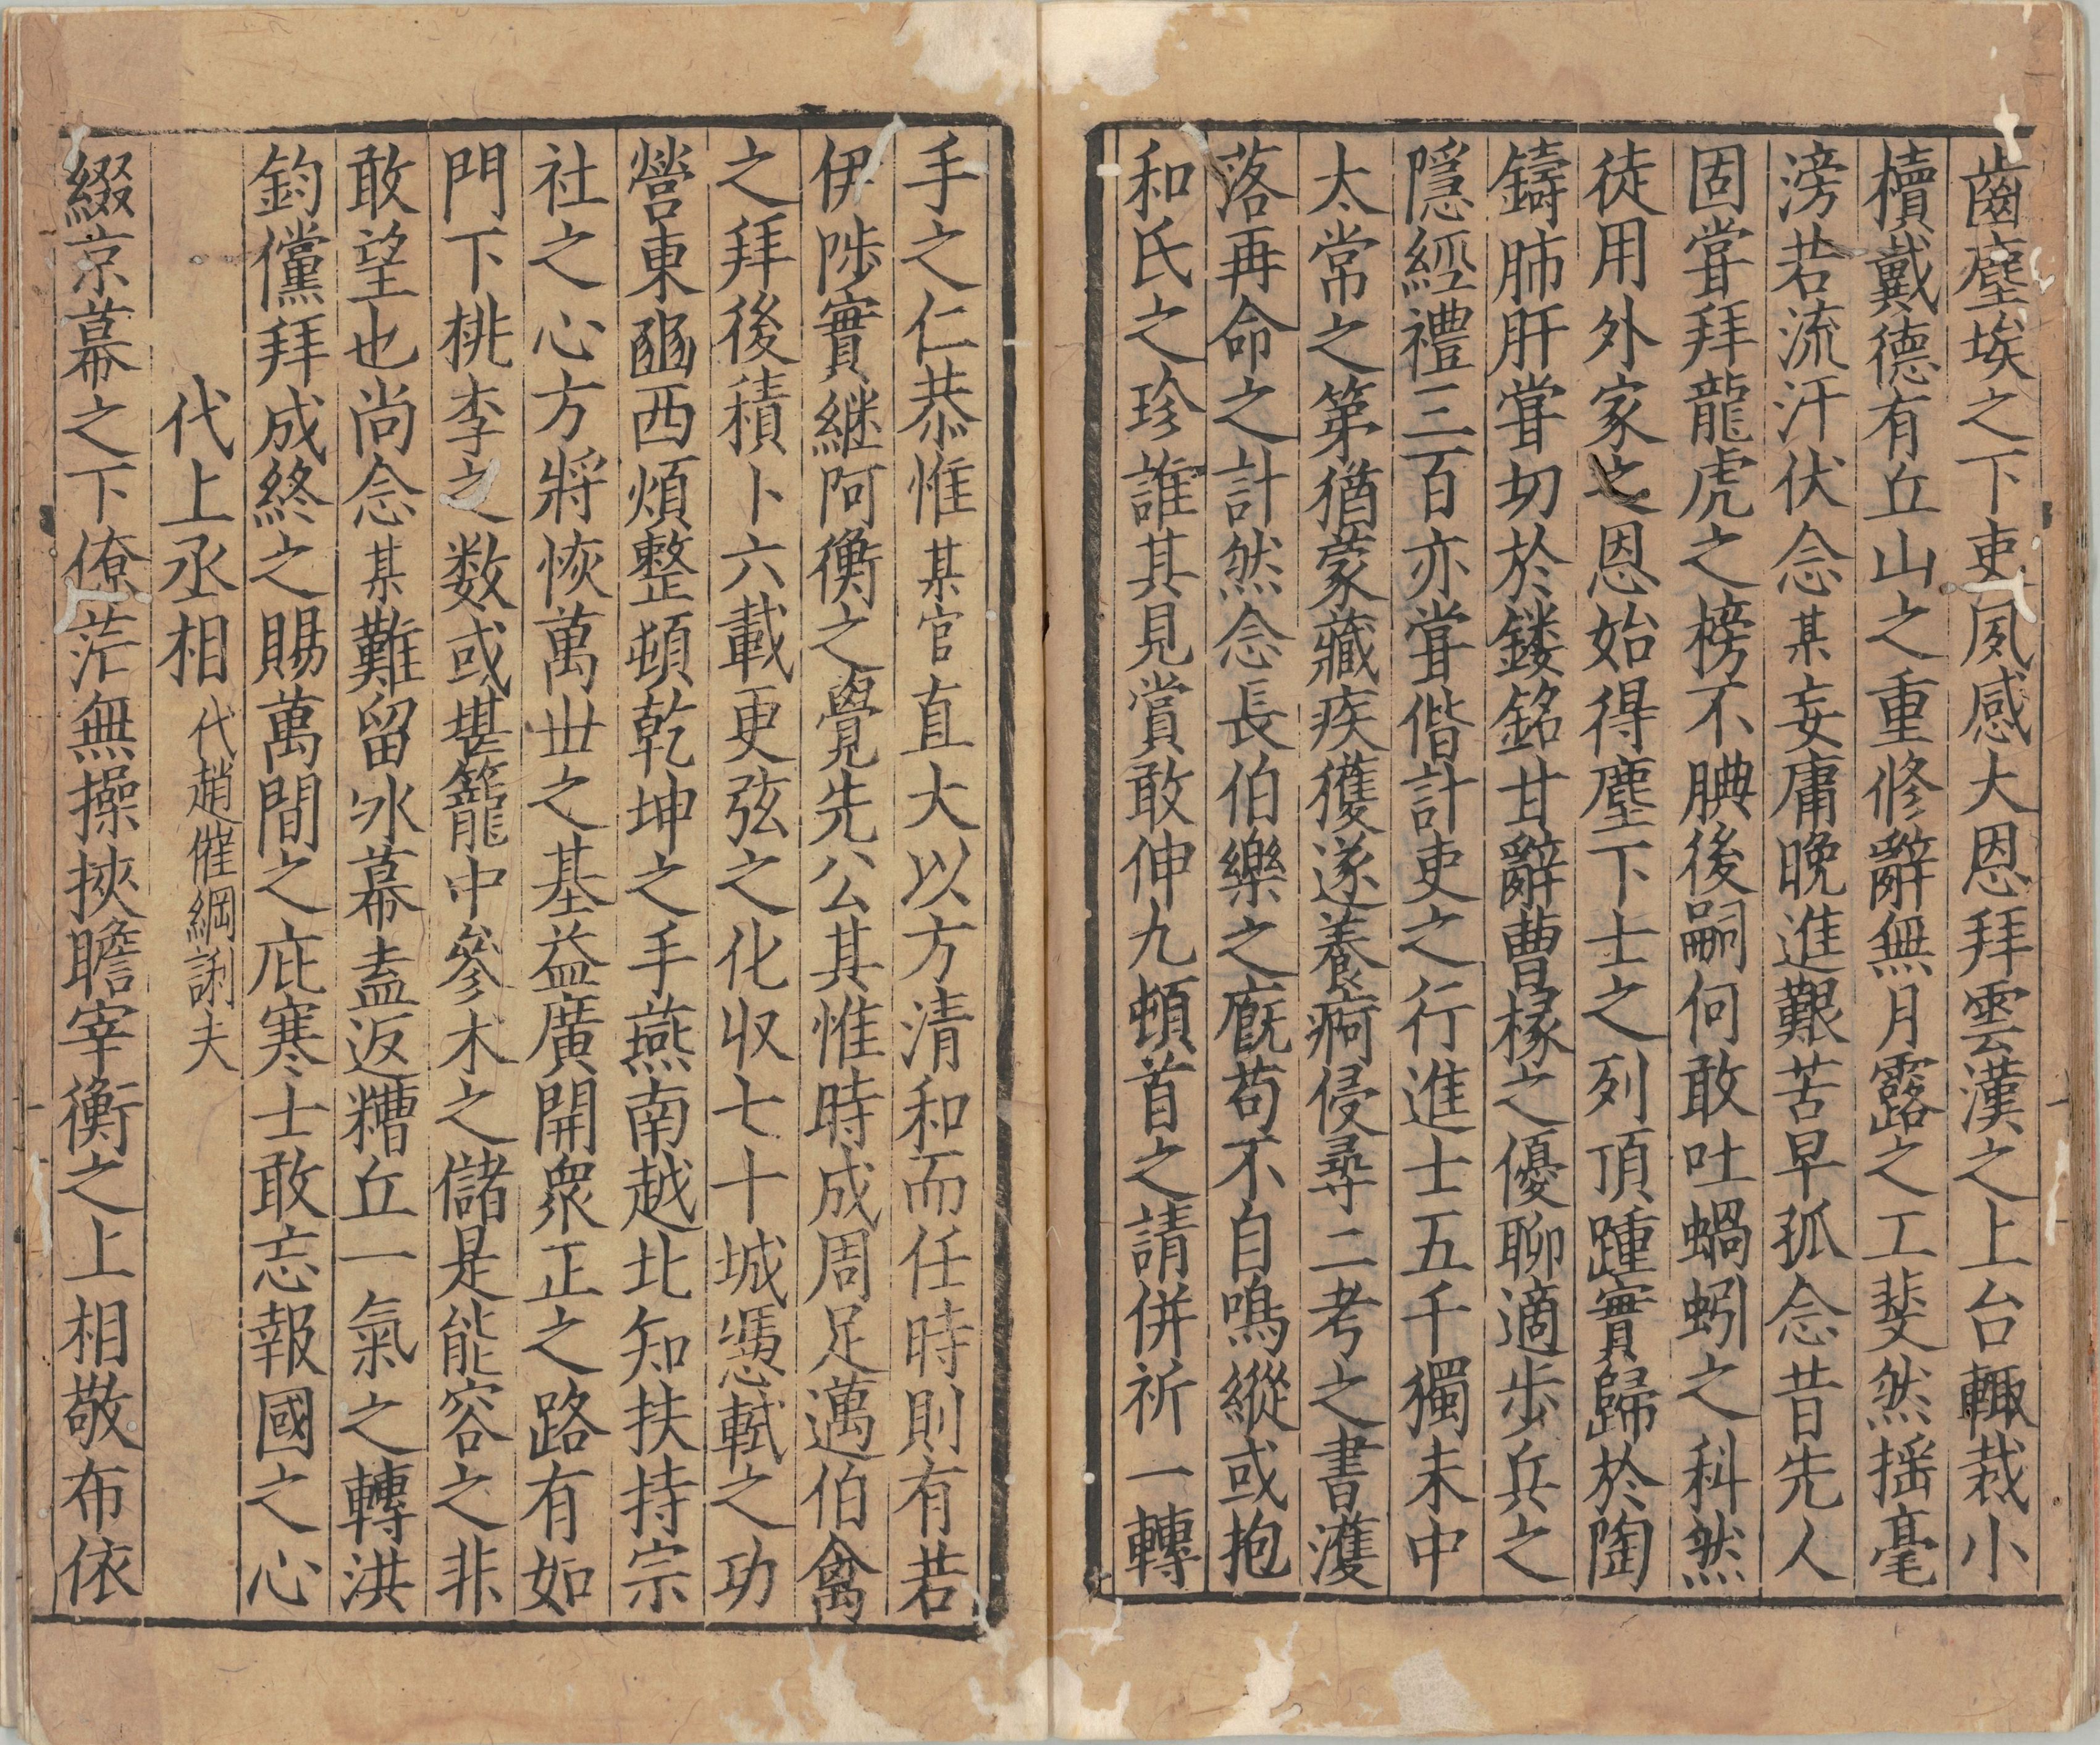 齒塵埃之下吏夙感大恩拜雲漢之上台輙裁小
櫝戴德有丘山之重修辭無月露之工斐然揺毫
滂若流汗伏念某妄庸晚進艱苦早孤念昔先人
固甞拜龍虎之榜不腆後嗣何敢吐蝸蚓之科然
徒用外家之恩始得塵下士之列頂踵實歸於陶
鑄肺肝甞切於鏤銘甘辭曹掾之優聊適步兵之
隱經禮三百亦甞偕計吏之行進士五千獨未中
太常之第猶蒙藏疾獲遂養痾侵尋二考之書濩
落再命之計然念長伯樂之廐苟不自鳴縱或抱
和氏之珍誰其見賞敢伸九頓首之請併祈一轉
手之仁恭惟某官直大以方清和而任時則有若
伊陟實継阿衡之覺先公其惟時成周足邁伯禽
之拜後積卜六載更弦之化収七十城慿軾之功
營東豳西煩整頓乾坤之手燕南越北知扶持宗
社之心方將恢萬丗之基益廣開衆正之路有如
門下桃李之数或堪籠中參木之儲是能容之非
敢望也尚念某難留氷幕盍返糟丘一氣之轉洪
鈞儻拜成終之賜萬間之庇寒士敢忘報國之心
代上丞相代趙催綱詶夫
綴京幕之下僚茫無操挾瞻宰衡之上相敬布依